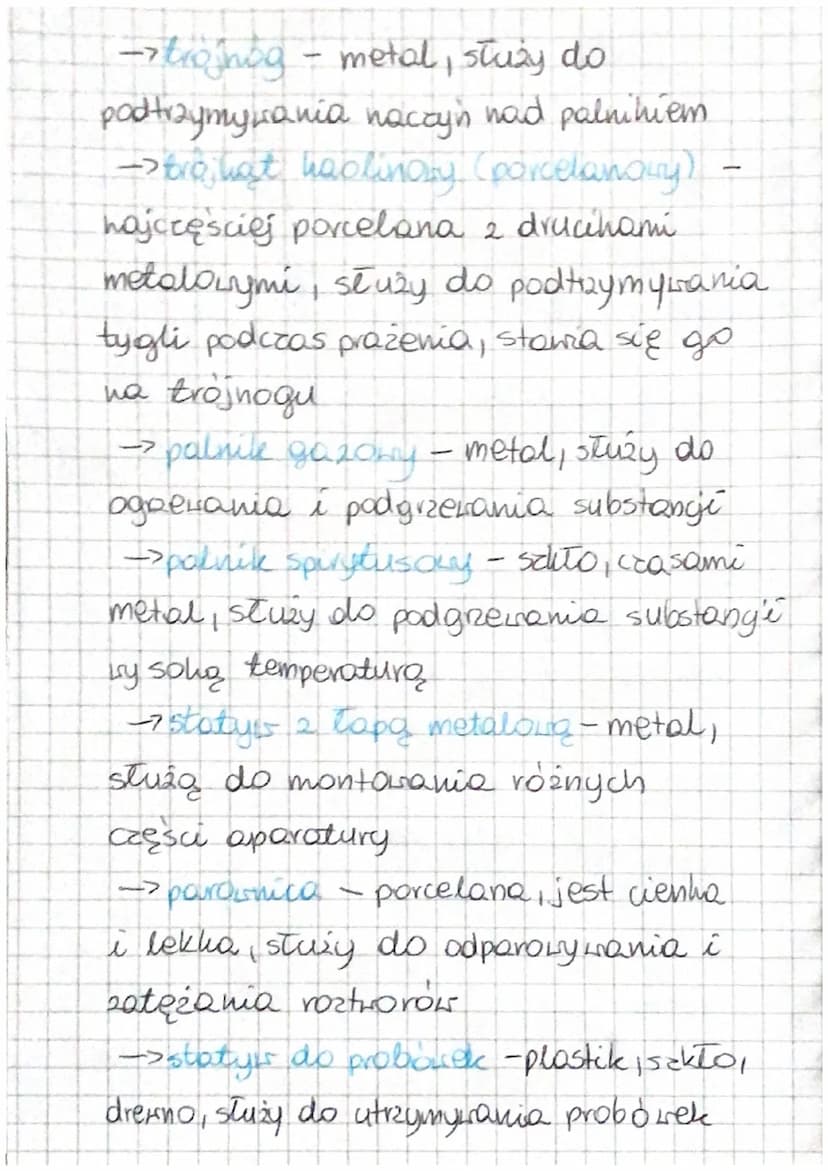 → trójnóg - metal, służy do
podtrzymywania naczyń nad palnikiem
→ trójkąt kaolinowy (porcelanowy) -
najczęściej porcelana z drucikami
metalowymi, służy do podtrzymywania
tygli podczas prażenia, stawia się go
na trójnogu
→ palnik gazowy - metal, służy do
ogrzewania i podgrzewania substancji
→ palnik spirytusowy - szkło, czasami
metal, służy do podgrzewania substancji
wysoką temperaturą
→ statyw z łapą metalową - metal,
służą do montowania różnych
części aparatury
→ parownica - porcelana, jest cienka
i lekka, służy do odparowywania i
zatężania roztworów
→ statyw do probówek - plastik, szkło,
drewno, służy do utrzymywania probówek